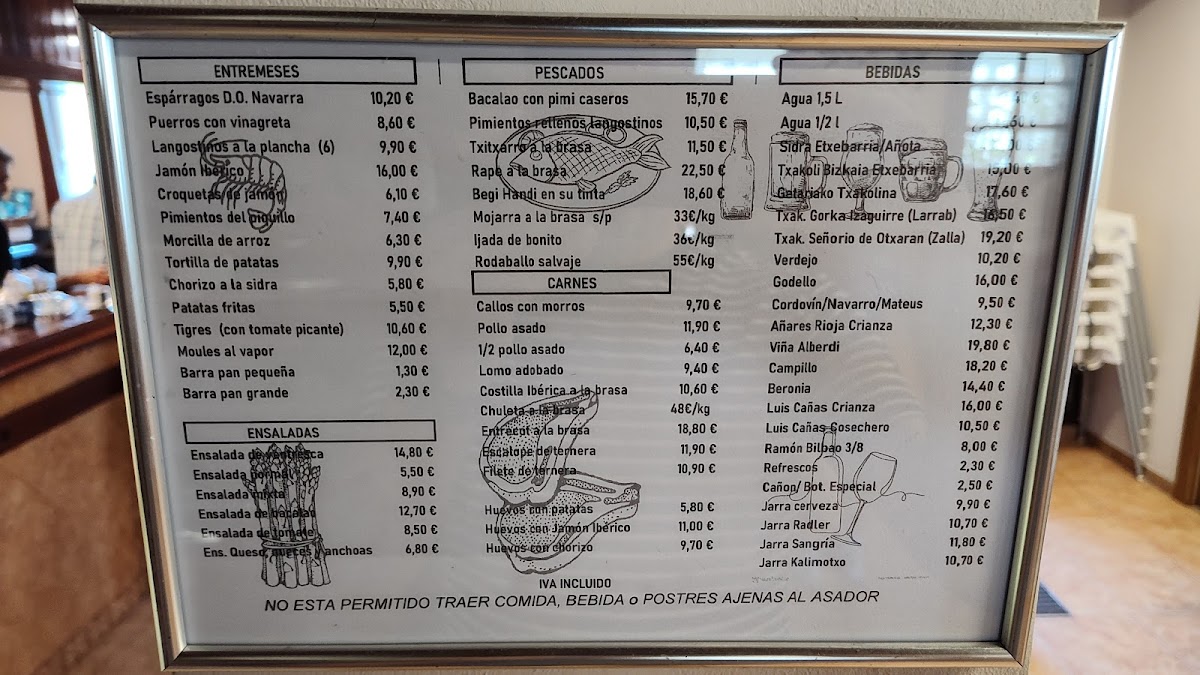 ENTREMESES
Espárragos D.O. Navarra 10,20 €
Puerros con vinagreta 8,60 €
Langostinos a la plancha (6) 9,90 €
Jamón Ibérico 16,00 €
Croquetas de jamón 6,10 €
Pimientos del piquillo 7,40 €
Morcilla de arroz 6,30 €
Tortilla de patatas 9,90 €
Chorizo a la sidra 5,80 €
Patatas fritas 5,50 €
Tigres (con tomate picante) 10,60 €
Moules al vapor 12,00 €
Barra pan pequeña 1,30 €
Barra pan grande 2,30 €
ENSALADAS
Ensalada de ventresca 14,80 €
Ensalada normal 5,50 €
Ensalada mixta 8,90 €
Ensalada de bacalao 12,70 €
Ensalada de tomate 8,50 €
Ens. Queso, nueces y anchoas 6,80 €
PESCADOS
Bacalao con pimi caseros 15,70 €
Pimientos rellenos langostinos 10,50 €
Txitxarro a la brasa 11,50 €
Rape a la brasa 22,50 €
Begi Handi en su tinta 18,60 €
Mojarra a la brasa s/p 33€/kg
Ijada de bonito 36€/kg
Rodaballo salvaje 55€/kg
CARNES
Callos con morros 9,70 €
Pollo asado 11,90 €
1/2 pollo asado 6,40 €
Lomo adobado 9,40 €
Costilla Ibérica a la brasa 10,60 €
Chuleta a la brasa 48€/kg
Entrecot a la brasa 18,80 €
Escalope de ternera 11,90 €
Filete de ternera 10,90 €
Huevos con patatas 5,80 €
Huevos con Jamón Ibérico 11,00 €
Huevos con chorizo 9,70 €
BEBIDAS
Agua 1,5 L
Agua 1/2 l
Sidra Etxebarria/Añota
Txakoli Bizkaia Etxebarria 15,00 €
Getariako Txakolina 17,60 €
Txak. Gorka Izaguirre (Larrab) 16,50 €
Txak. Señorio de Otxaran (Zalla) 19,20 €
Verdejo 10,20 €
Godello 16,00 €
Cordovín/Navarro/Mateus 9,50 €
Añares Rioja Crianza 12,30 €
Viña Alberdi 19,80 €
Campillo 18,20 €
Beronia 14,40 €
Luis Cañas Crianza 16,00 €
Luis Cañas Cosechero 10,50 €
Ramón Bilbao 3/8 8,00 €
Refrescos 2,30 €
Cañon/ Bot. Especial 2,50 €
Jarra cerveza 9,90 €
Jarra Radler 10,70 €
Jarra Sangría 11,80 €
Jarra Kalimotxo 10,70 €
IVA INCLUIDO
NO ESTA PERMITIDO TRAER COMIDA, BEBIDA o POSTRES AJENAS AL ASADOR